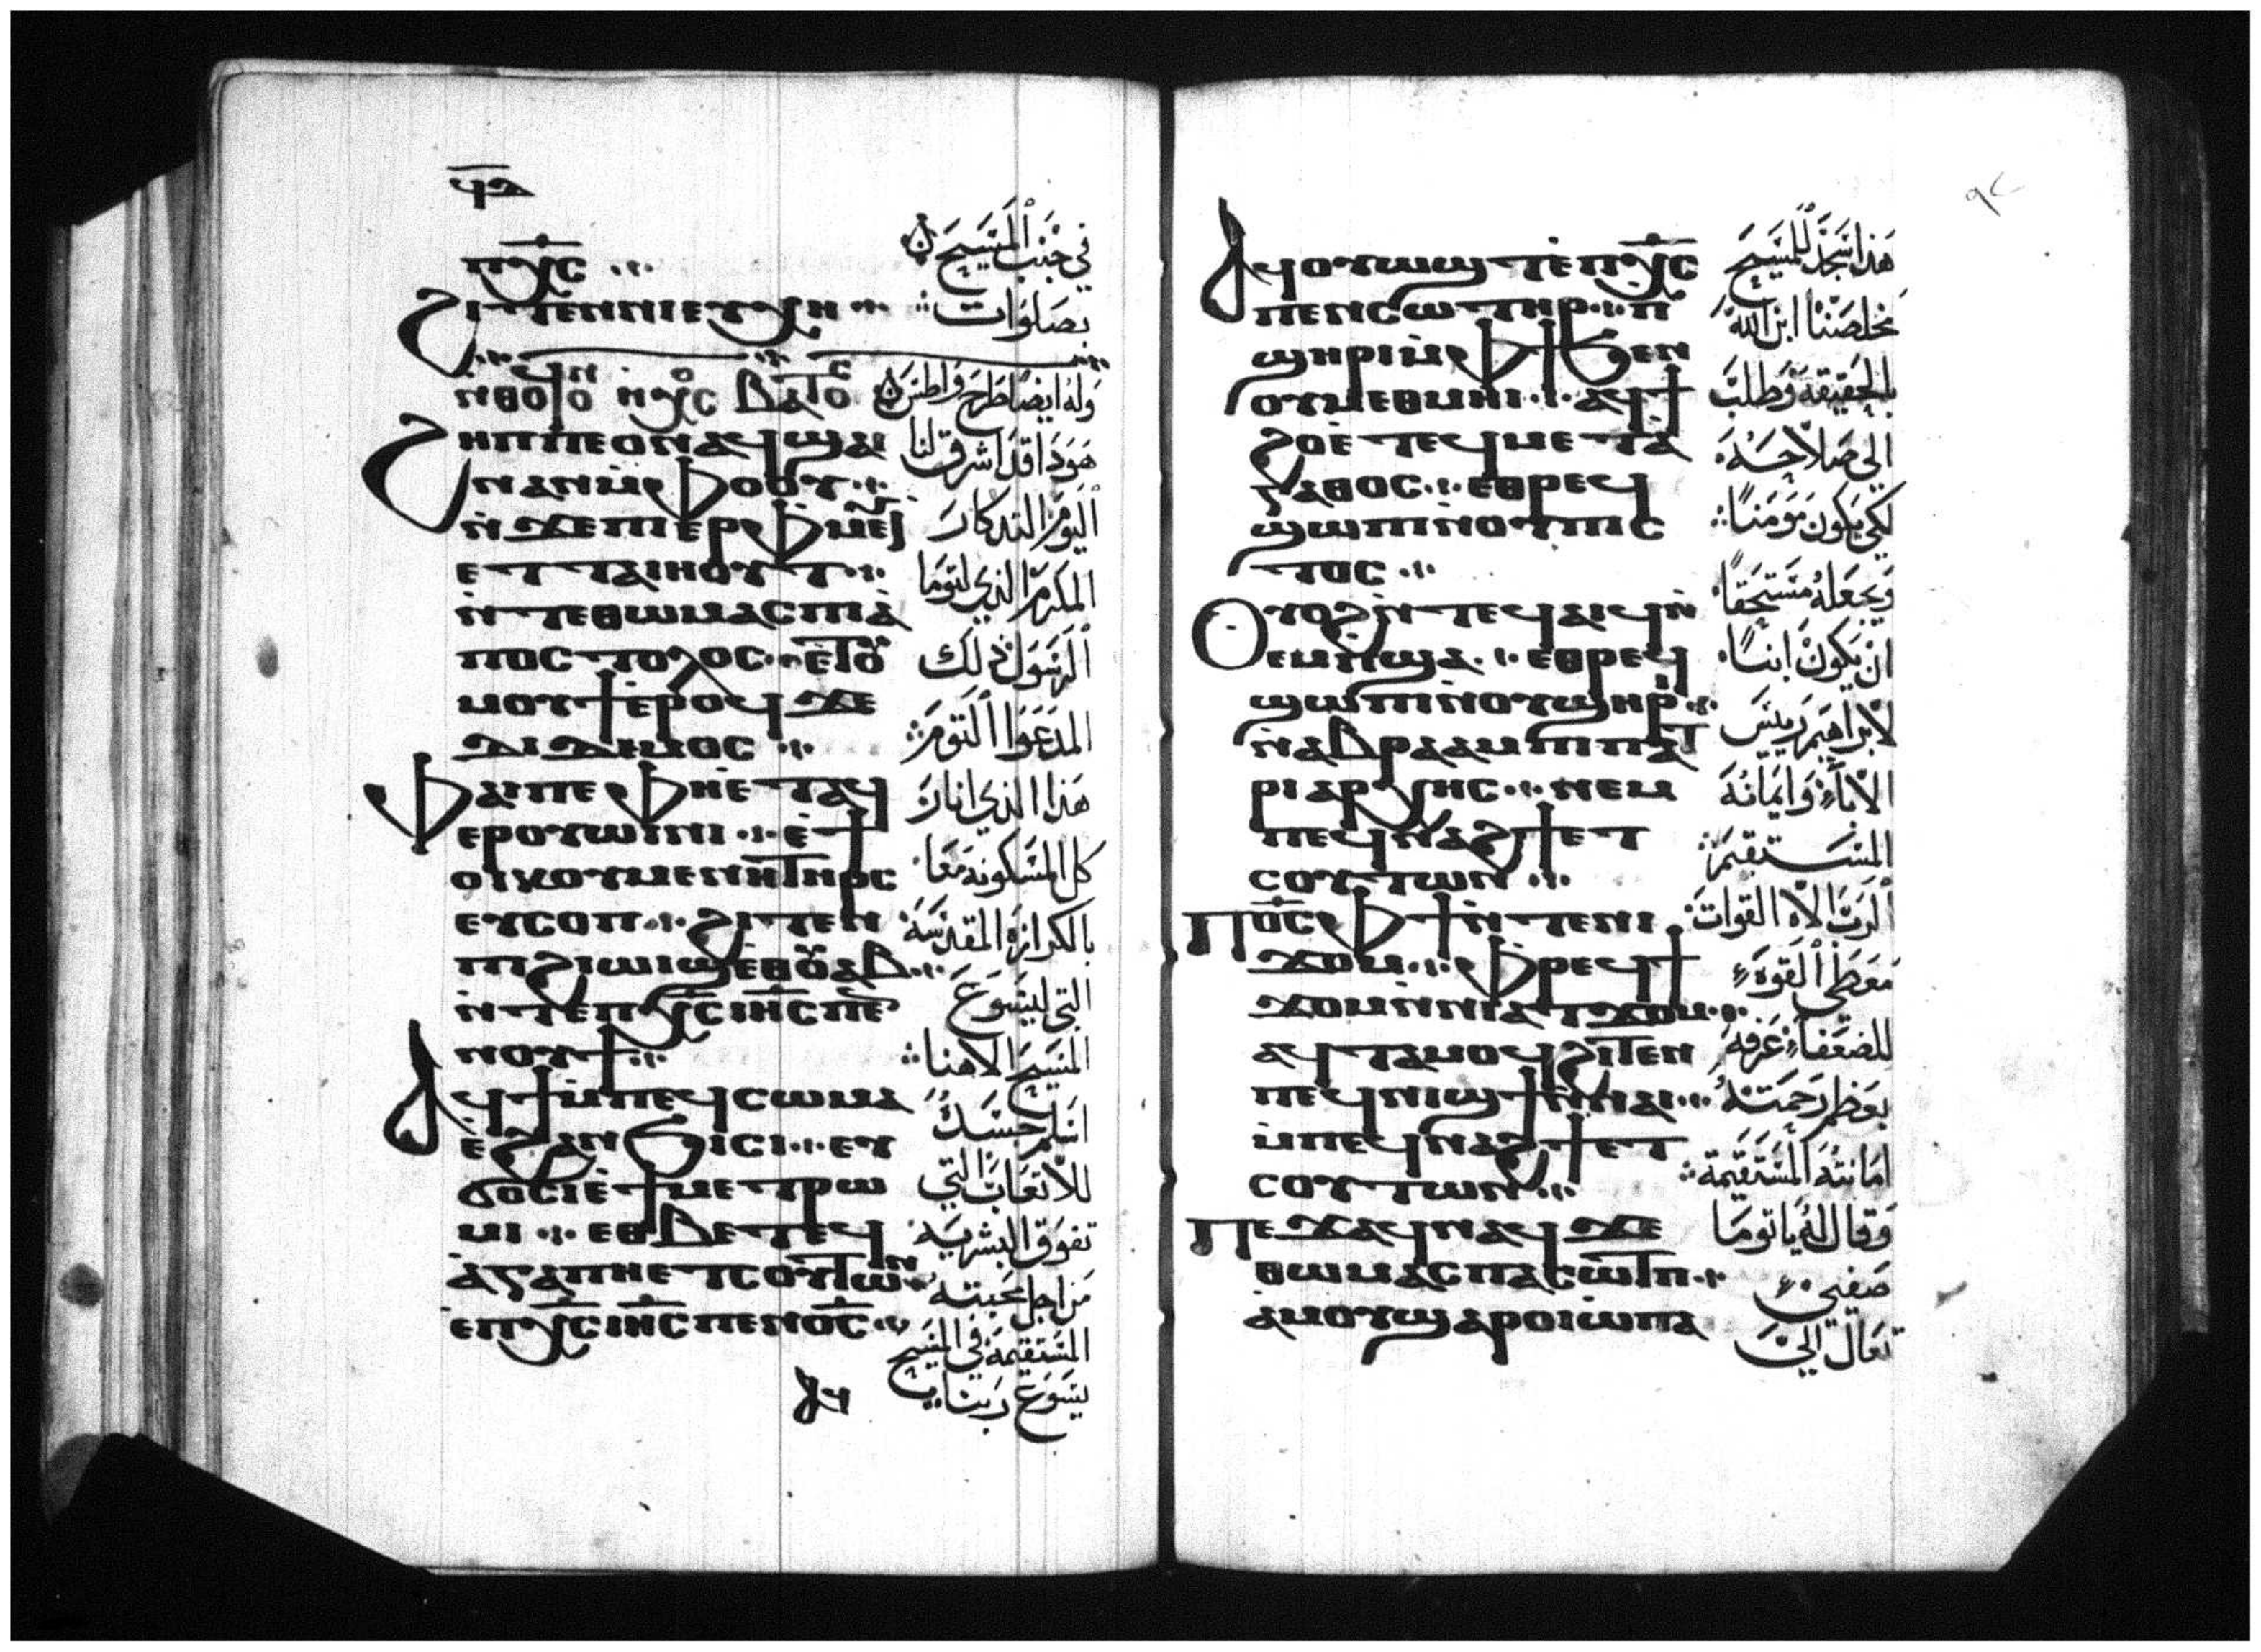 ϥⲁ
ⲡⲭ̅ⲥ̅ ·:·
ϩⲓⲧⲉⲛⲛⲓⲉⲩⲭⲏ ·:·
في جنب المسيح
بصلوات
ⲛⲑⲟϥ ⲟⲛ ⲏⲭⲟⲥ ⲃⲁⲧⲟⲥ
وله ايضا طرح واطس
ϩⲏⲡⲡⲉⲟⲛⲁϥϣⲁⲓ
ⲛⲁⲛⲙ̀ⲫⲟⲟⲩ ·:·
ⲛ̀ϫⲉⲡⲓⲉⲣⲫⲙⲉⲩⲓ̀
ⲉⲧⲧⲁⲓⲏⲟⲩⲧ ·:·
ⲛ̀ⲧⲉⲑⲱⲙⲁⲥⲡⲓⲁ̀
ⲡⲟⲥⲧⲟⲗⲟⲥ ·:· ⲉ̀ⲧⲟⲩ
ⲙⲟⲩϯⲉ̀ⲣⲟϥϫⲉ
ⲇⲓⲇⲩⲙⲟⲥ ·:·
ⲫⲁⲓⲡⲉⲫⲏⲉ̀ⲧⲁϥ
ⲉⲣⲟⲩⲱⲓⲛⲓ ·:· ⲉ̀ϯ
ⲟⲓⲕⲟⲩⲙⲉⲛⲏⲧⲏⲣⲥ
ⲉⲩⲥⲟⲡ ·:· ϩⲓⲧⲉⲛ
ⲡⲓϩⲓⲱⲓϣⲉⲑⲟⲩⲁⲃ ·:·
ⲛ̀ⲧⲉⲡⲭ̅ⲥ̅ⲓⲏ̅ⲥ̅ⲡⲉ
ⲛⲟⲩϯ ·:·
ⲁϥϯⲙ̀ⲡⲉϥⲥⲱⲙⲁ
ⲉ̀ϩⲁⲛϧⲓⲥⲓ ·:· ⲉⲩ
ϭⲟⲥⲓⲉ̀ϯⲙⲉⲧⲣⲱ
ⲙⲓ ·:· ⲉⲑⲃⲉⲧⲉϥ
ⲁ̀ⲅⲁⲡⲏⲉⲧⲥⲟⲩⲧⲱⲛ
ⲉⲡⲭ̅ⲥ̅ⲓⲏ̅ⲥ̅ⲡⲉⲛⲟ̅ⲥ̅ ·:·
ⲁϥ
هوذا قد اشرق لنا
اليوم التدكار
المكرم الذي لتوما
الرسول ذلك
المدعوا التوم
هذا الذي انار
كل المسكونة معا
بالكرازة المقدسة
التي ليسوع
المسيح الاهنا
اسلم جسده
للاتعاب التي
تفوق البشرية
من اجل محبته
المستقيمة في المسيح
يسوع ربنا
٩٢
ⲁϥⲟⲩⲱϣⲧⲉ̀ⲡⲭ̅ⲥ̅
ⲡⲉⲛⲥⲱⲧⲏⲣ ·:· ⲡ
ϣⲏⲣⲓⲙ̀ⲫϯϧⲉⲛ
ⲟⲩⲙⲉⲑⲙⲏⲓ ·:· ⲁϥϯ
ϩⲟⲉ̀ⲧⲉϥⲙⲉⲧⲁ̀
ⲅⲁⲑⲟⲥ ·:· ⲉⲑⲣⲉϥ
ϣⲱⲡⲓⲛ̀ⲟⲩⲡⲓⲥ
ⲧⲟⲥ ·:·
ⲟⲩⲟϩⲛ̀ⲧⲉϥⲁⲓϥⲛ̀
ⲉⲙⲡϣⲁ ·:· ⲉⲑⲣⲉϥ
ϣⲱⲡⲓⲛ̀ⲟⲩϣⲏⲣⲓ ·:·
ⲛ̀ⲁⲃⲣⲁⲁⲙⲡⲓⲡⲁⲧ
ⲣⲓⲁⲣⲭⲏⲥ ·:· ⲛⲉⲙ
ⲡⲉϥⲛⲁϩϯⲉⲧ
ⲥⲟⲩⲧⲱⲛ ·:·
ⲡⲟ̅ⲥ̅ⲫϯⲛ̀ⲧⲉⲛⲓ
ϫⲟⲙ ·:· ⲫⲣⲉϥϯ
ϫⲟⲙⲛ̀ⲛⲓⲁⲧϫⲟⲙ ·:·
ⲁϥⲧⲁⲙⲟϥϩⲓⲧⲉⲛ
ⲡⲉϥⲛⲓϣϯⲛ̀ⲛⲁⲓ ·:·
ⲙ̀ⲡⲉϥⲛⲁϩϯⲉⲧ
ⲥⲟⲩⲧⲱⲛ ·:·
ⲡⲉϫⲁϥⲛⲁϥϫⲉ
ⲑⲱⲙⲁⲥⲡⲁⲥⲱⲧⲡ ·:·
ⲁ̀ⲙⲟⲩϣⲁⲣⲟⲓⲙ̀ⲡⲁ
هذا سجد للمسيح
مخلصنا ابن الله
بالحقيقة وطلب
الي صلاحه
لكي يكون مومنا
ويجعله مستحقا
ان يكون ابنا
لابراهيم رييس
الاباء وايمانه
المستقيم
الرب الاه القوات
معطي القوة
للضعفاء عرفه
بعظم رحمته
امانته المستقيمة
وقال له يا توما
صفيي
تعال الي